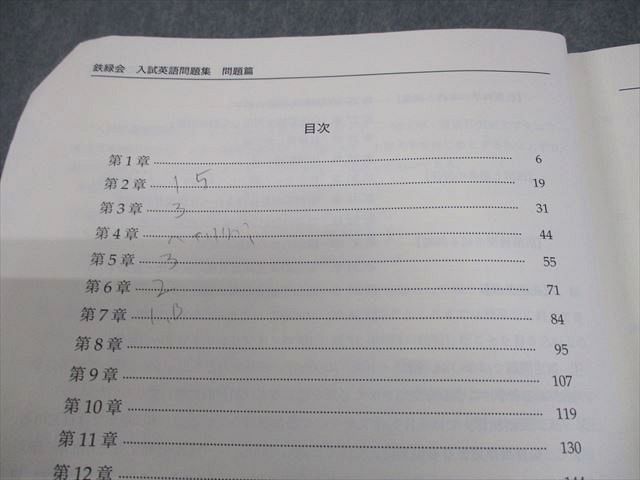 鉄緑会 入試英語問題集 問題篇
目次
第1章 6
第2章 1 5 19
第3章 3 31
第4章 44
第5章 3 55
第6章 2 71
第7章 84
第8章 95
第9章 107
第10章 119
第11章 130
第12章